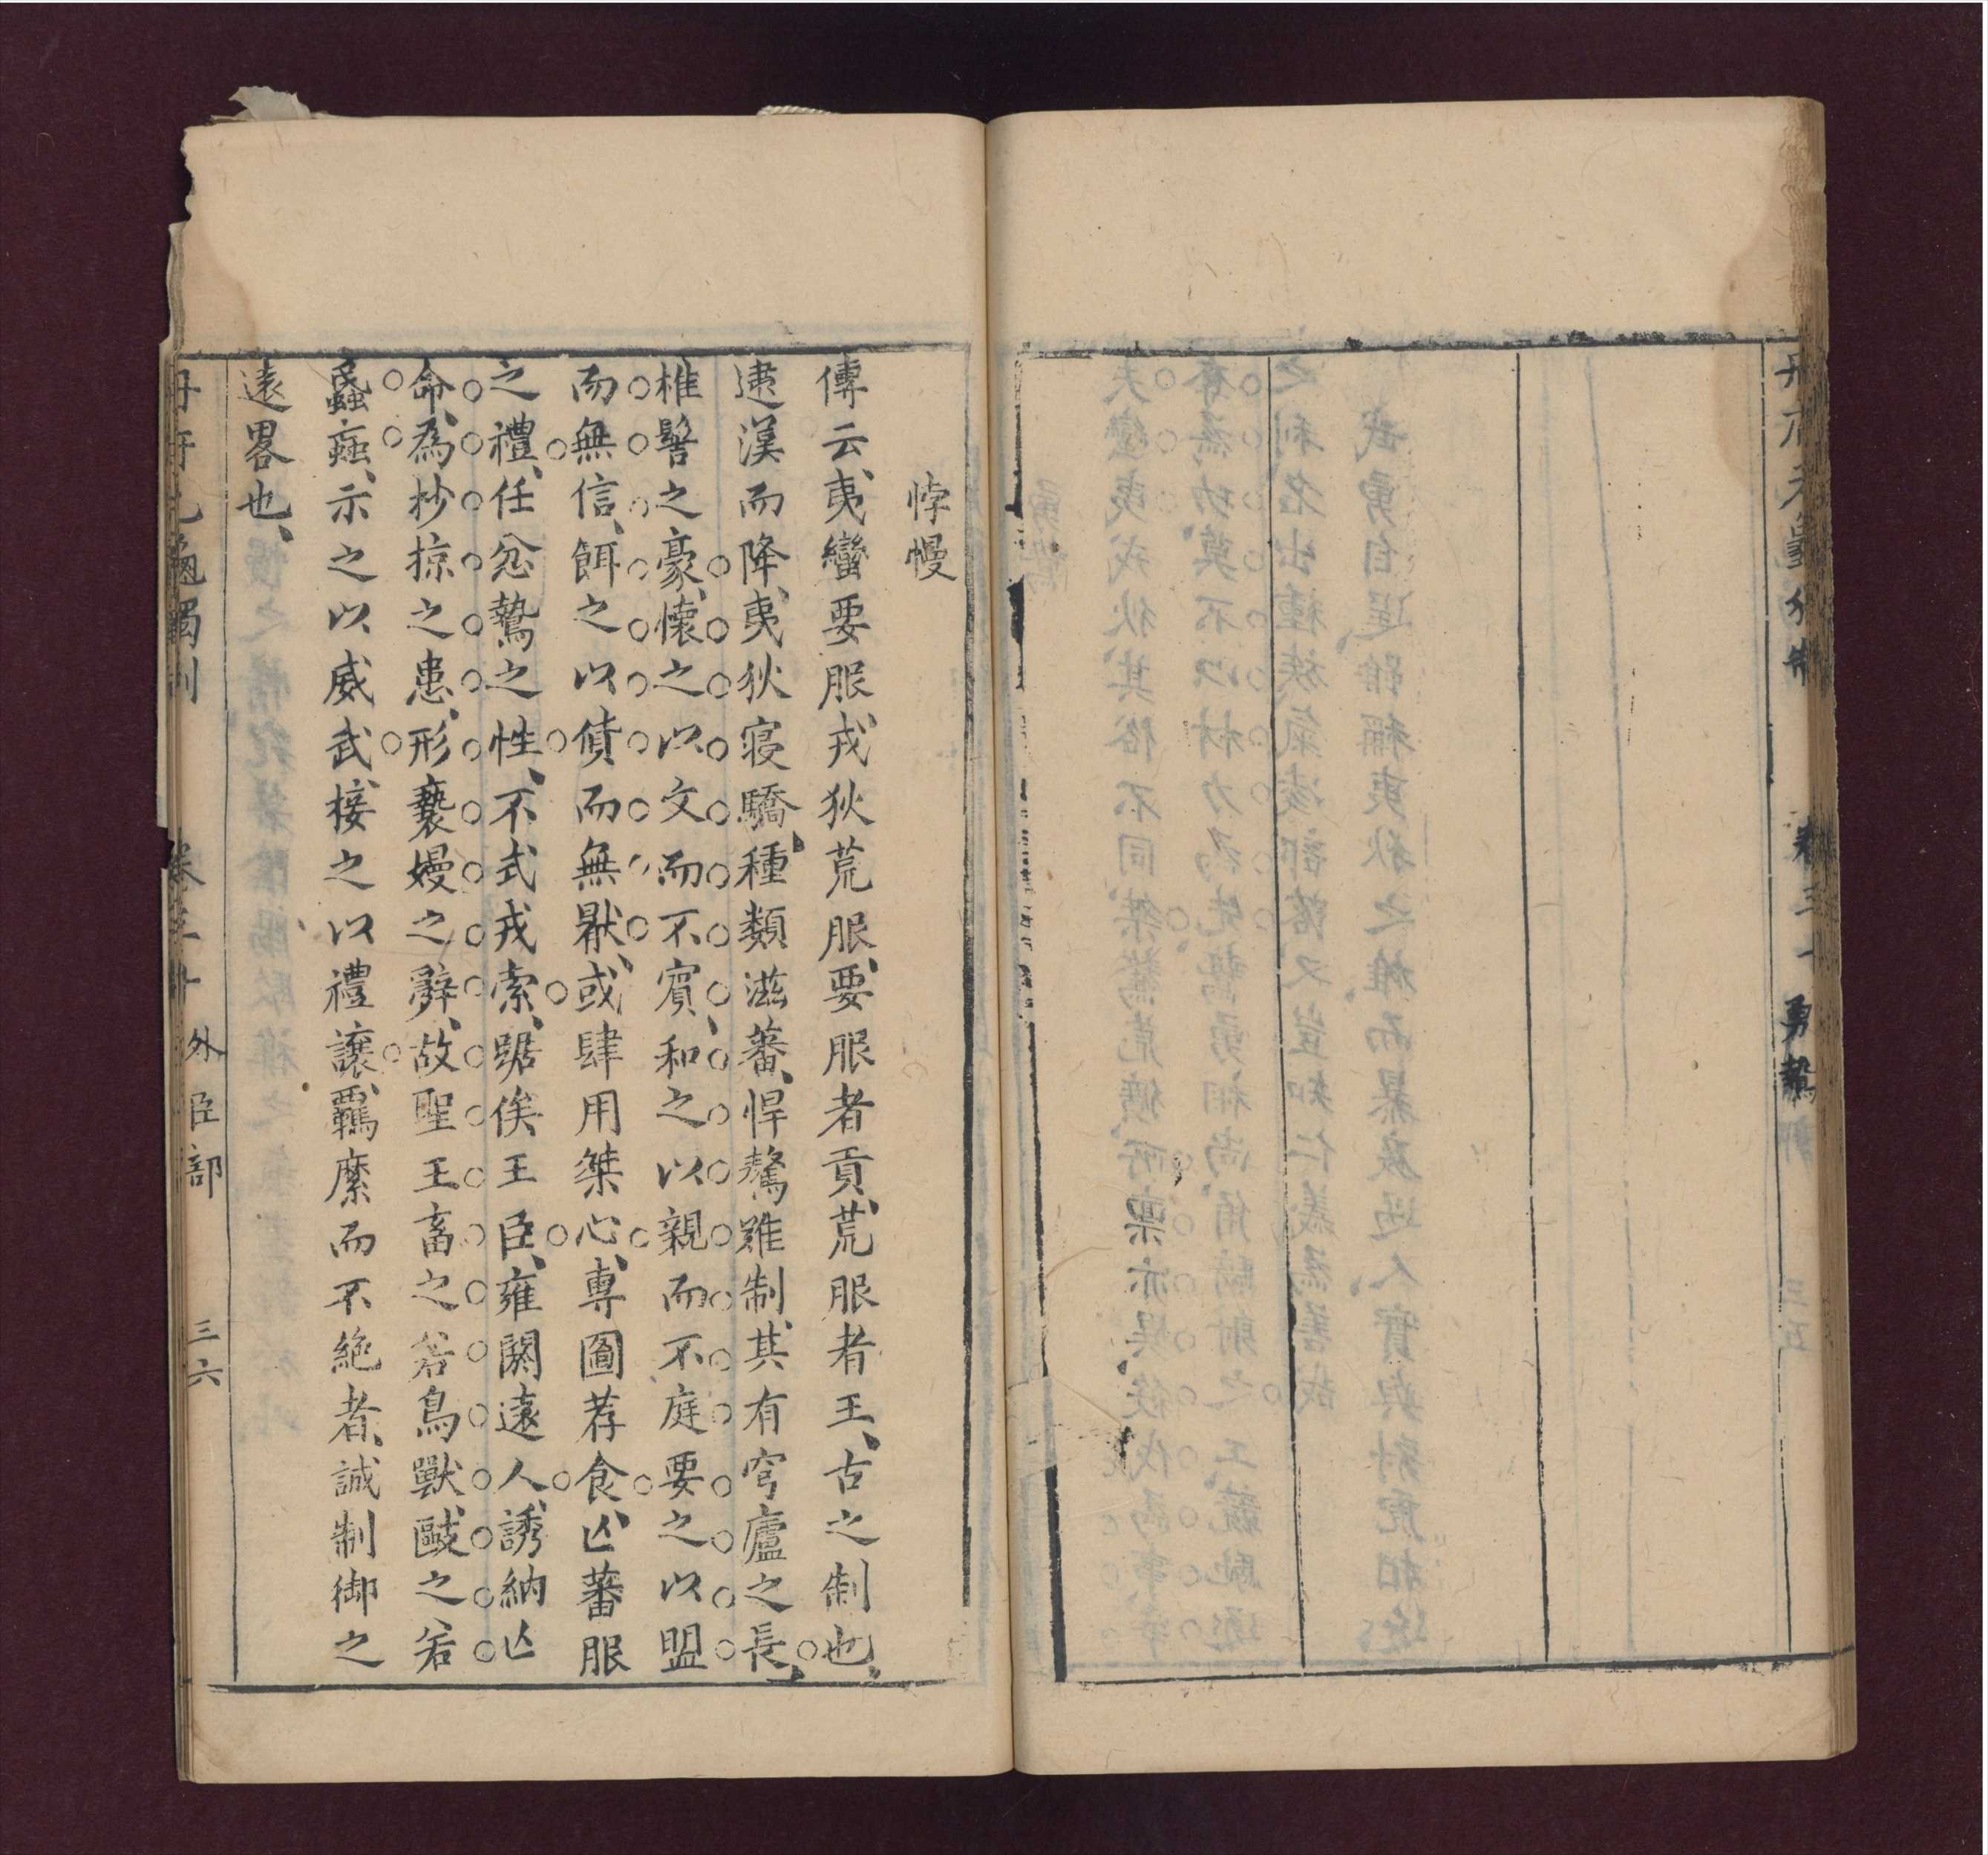 勇鷙
悖慢
傳云夷蠻要服戎狄荒服要服者貢荒服者王古之制也
逮漢而降夷狄寢驕種類滋蕃悍驁難制其有穹廬之長
椎髻之豪懷之以文而不賓和之以親而不庭要之以盟
而無信餌之以債而無猒或肆用桀心專圖荐食亾蕃服
之禮任忿鷙之性不式戎索踞俟王臣雍閼遠人誘納亾
命為抄掠之患形褻嫚之辭故聖王畜之若鳥獸敺之若
蟁蝱示之以威武接之以禮讓羈縻而不絶者誠制御之
遠畧也
外臣部
三六